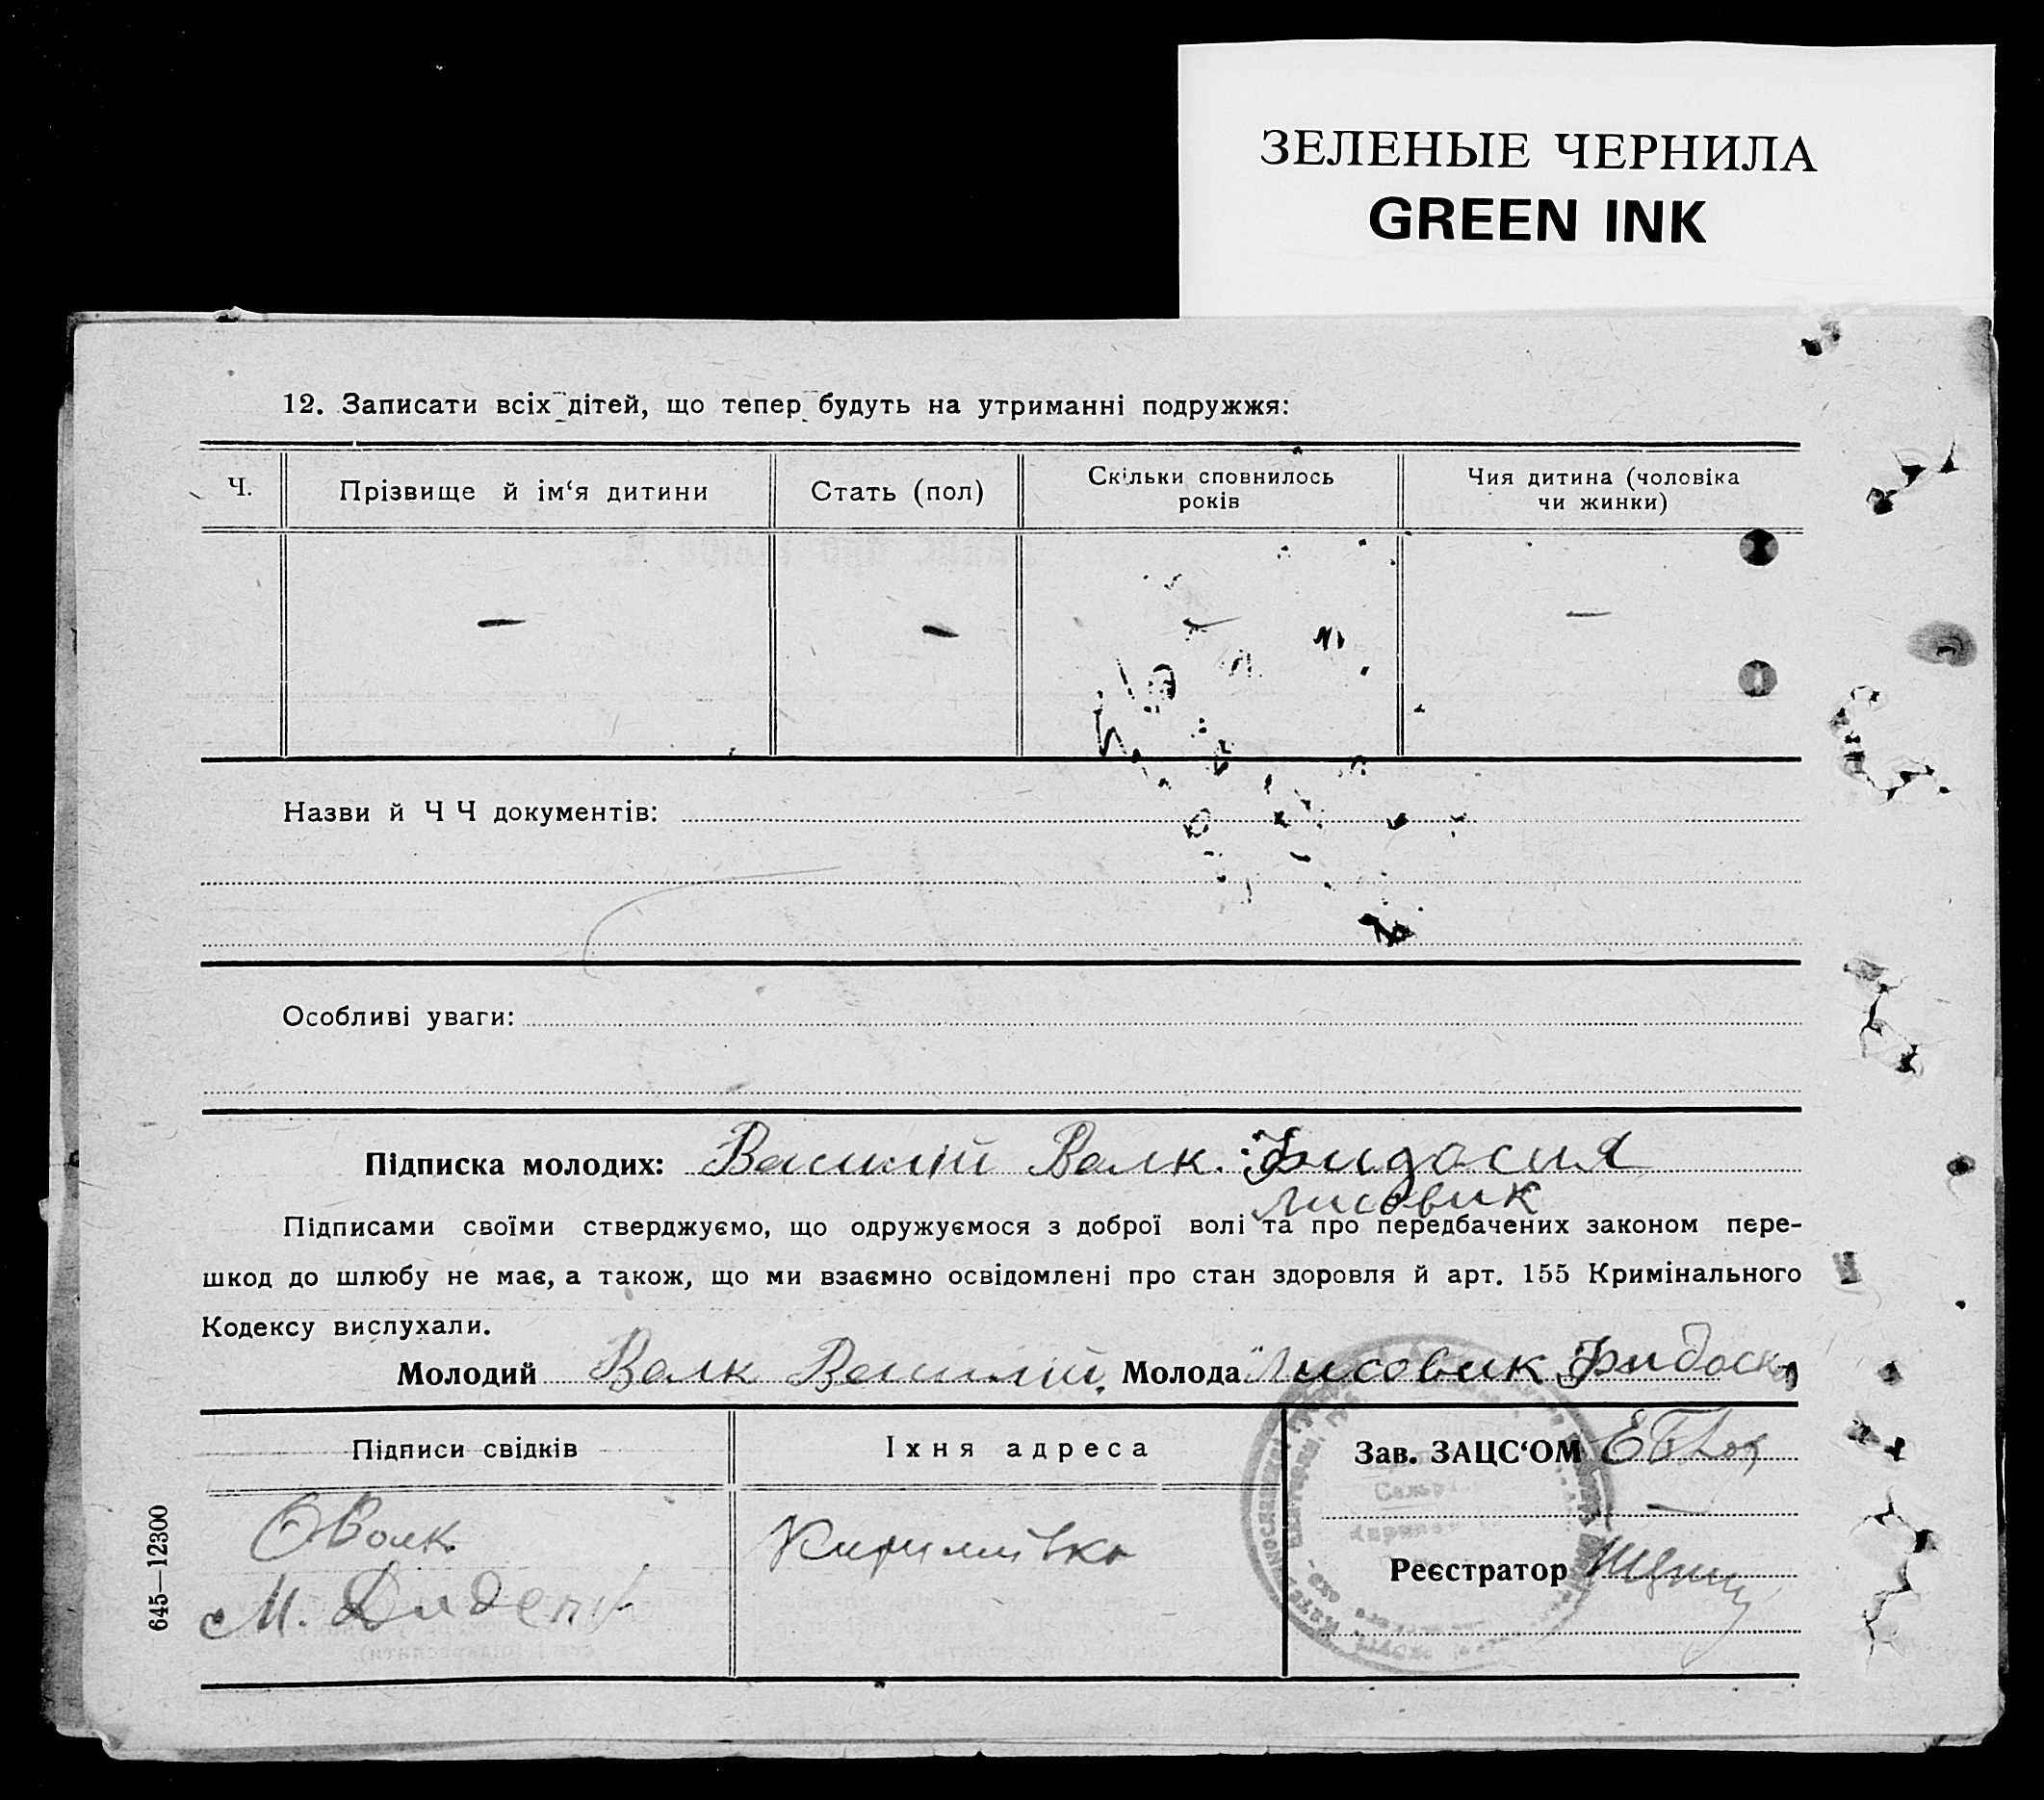 ЗЕЛЕНЫЕ ЧЕРНИЛА
GREEN INK
12. Записати всіх дітей, що тепер будуть на утриманні подружжя:
Ч.
Прізвище й ім‘я дитини
Стать (пол)
Скільки сповнилось
років
Чия дитина (чоловіка
чи жинки)
— — — —
Назви й Ч Ч документів:
Особливі уваги:
Підписка молодих: Василій Волк. Фидосия
Лисовик
Підписами своїми стверджуємо, що одружуємося з доброї волі та про передбачених законом пере-
шкод до шлюбу не має, а також, що ми взаємно освідомлені про стан здоровля й арт. 155 Кримінального
Кодексу вислухали.
Молодий Волк Василій. Молода Лисовик Фидоск
Підписи свідків
Їхня адреса
Зав. ЗАЦС‘ОМ
О Волк
Кириливка
Реєстратор
М.
645—12300